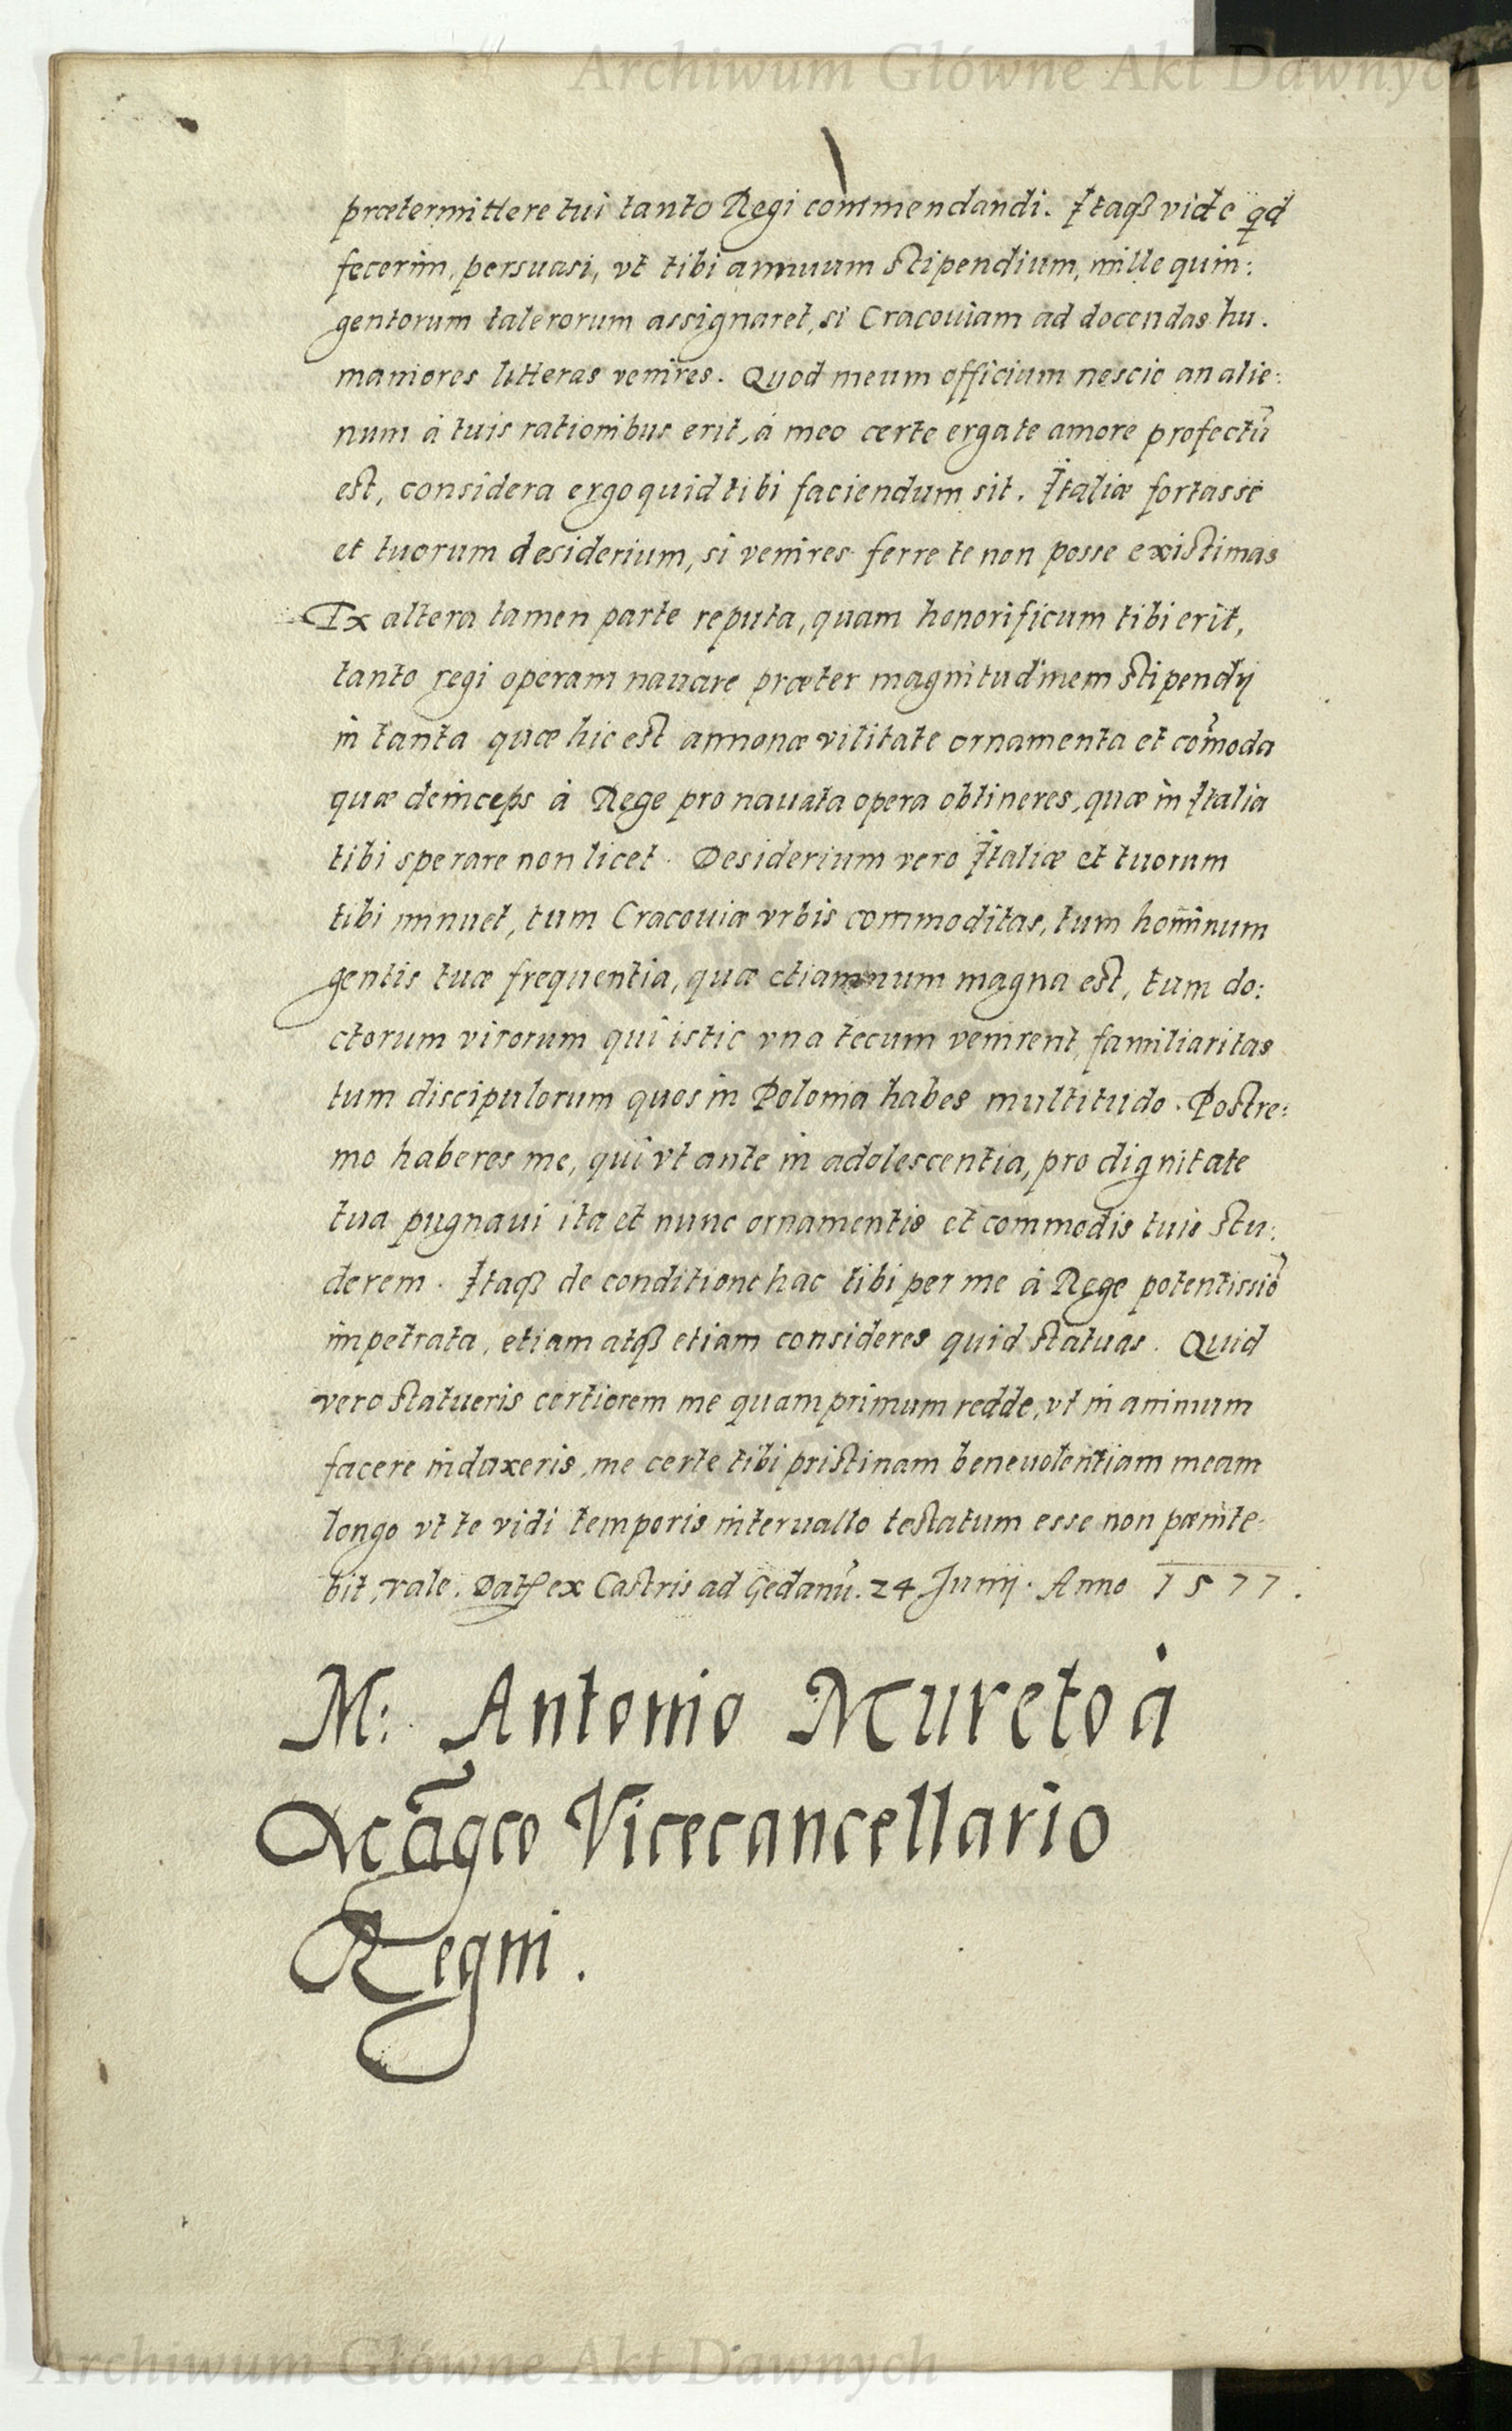 Archiwum Główne Akt Dawnych
prætermittere tui tanto Regi commendandi. Itaqꝫ vide qd
fecerim, persuasi, vt tibi annuum stipendium, mille quin:
gentorum talerorum assignaret, si Cracouiam ad docendas hu.
maniores litteras venires. Quod meum officium nescio an alie:
num à tuis rationibus erit, à meo certe erga te amore profectũ
est, considera ergo quid tibi faciendum sit. Italiæ fortasse
et tuorum desiderium, si venires ferre te non posse existimas
Ex altera tamen parte reputa, quam honorificum tibi erit,
tanto regi operam nauare præter magnitudinem stipendij
in tanta quæ hic est annonæ vilitate ornamenta et cõmoda
quæ deinceps à Rege pro nauata opera obtineres, quæ in Italia
tibi sperare non licet. Desiderium vero Italiæ et tuorum
tibi minuet, tum Cracouiæ vrbis commoditas, tum hominum
gentis tuæ frequentia, quæ etiamnum magna est, tum do:
ctorum virorum qui istic vna tecum venirent, familiaritas
tum discipulorum quos in Polonia habes multitudo. Postre:
mo haberes me, qui vt ante in adolescentia, pro dignitate
tua pugnaui ita et nunc ornamentis et commodis tuis stu:
derem. Itaqꝫ de conditione hac tibi per me à Rege potentissiõ
impetrata, etiam atqꝫ etiam consideres quid statuas. Quid
vero statueris certiorem me quamprimum redde, vt in animum
facere induxeris, me certe tibi pristinam beneuolentiam meam
longo vt te vidi temporis interuallo testatum esse non pænite-
bit, vale. Dat ex Castris ad Gedanũ. 24 Junij. Anno 1577.
M: Antonio Mureto à
Mãgco Vicecancellario
Regni.
Archiwum Główne Akt Dawnych